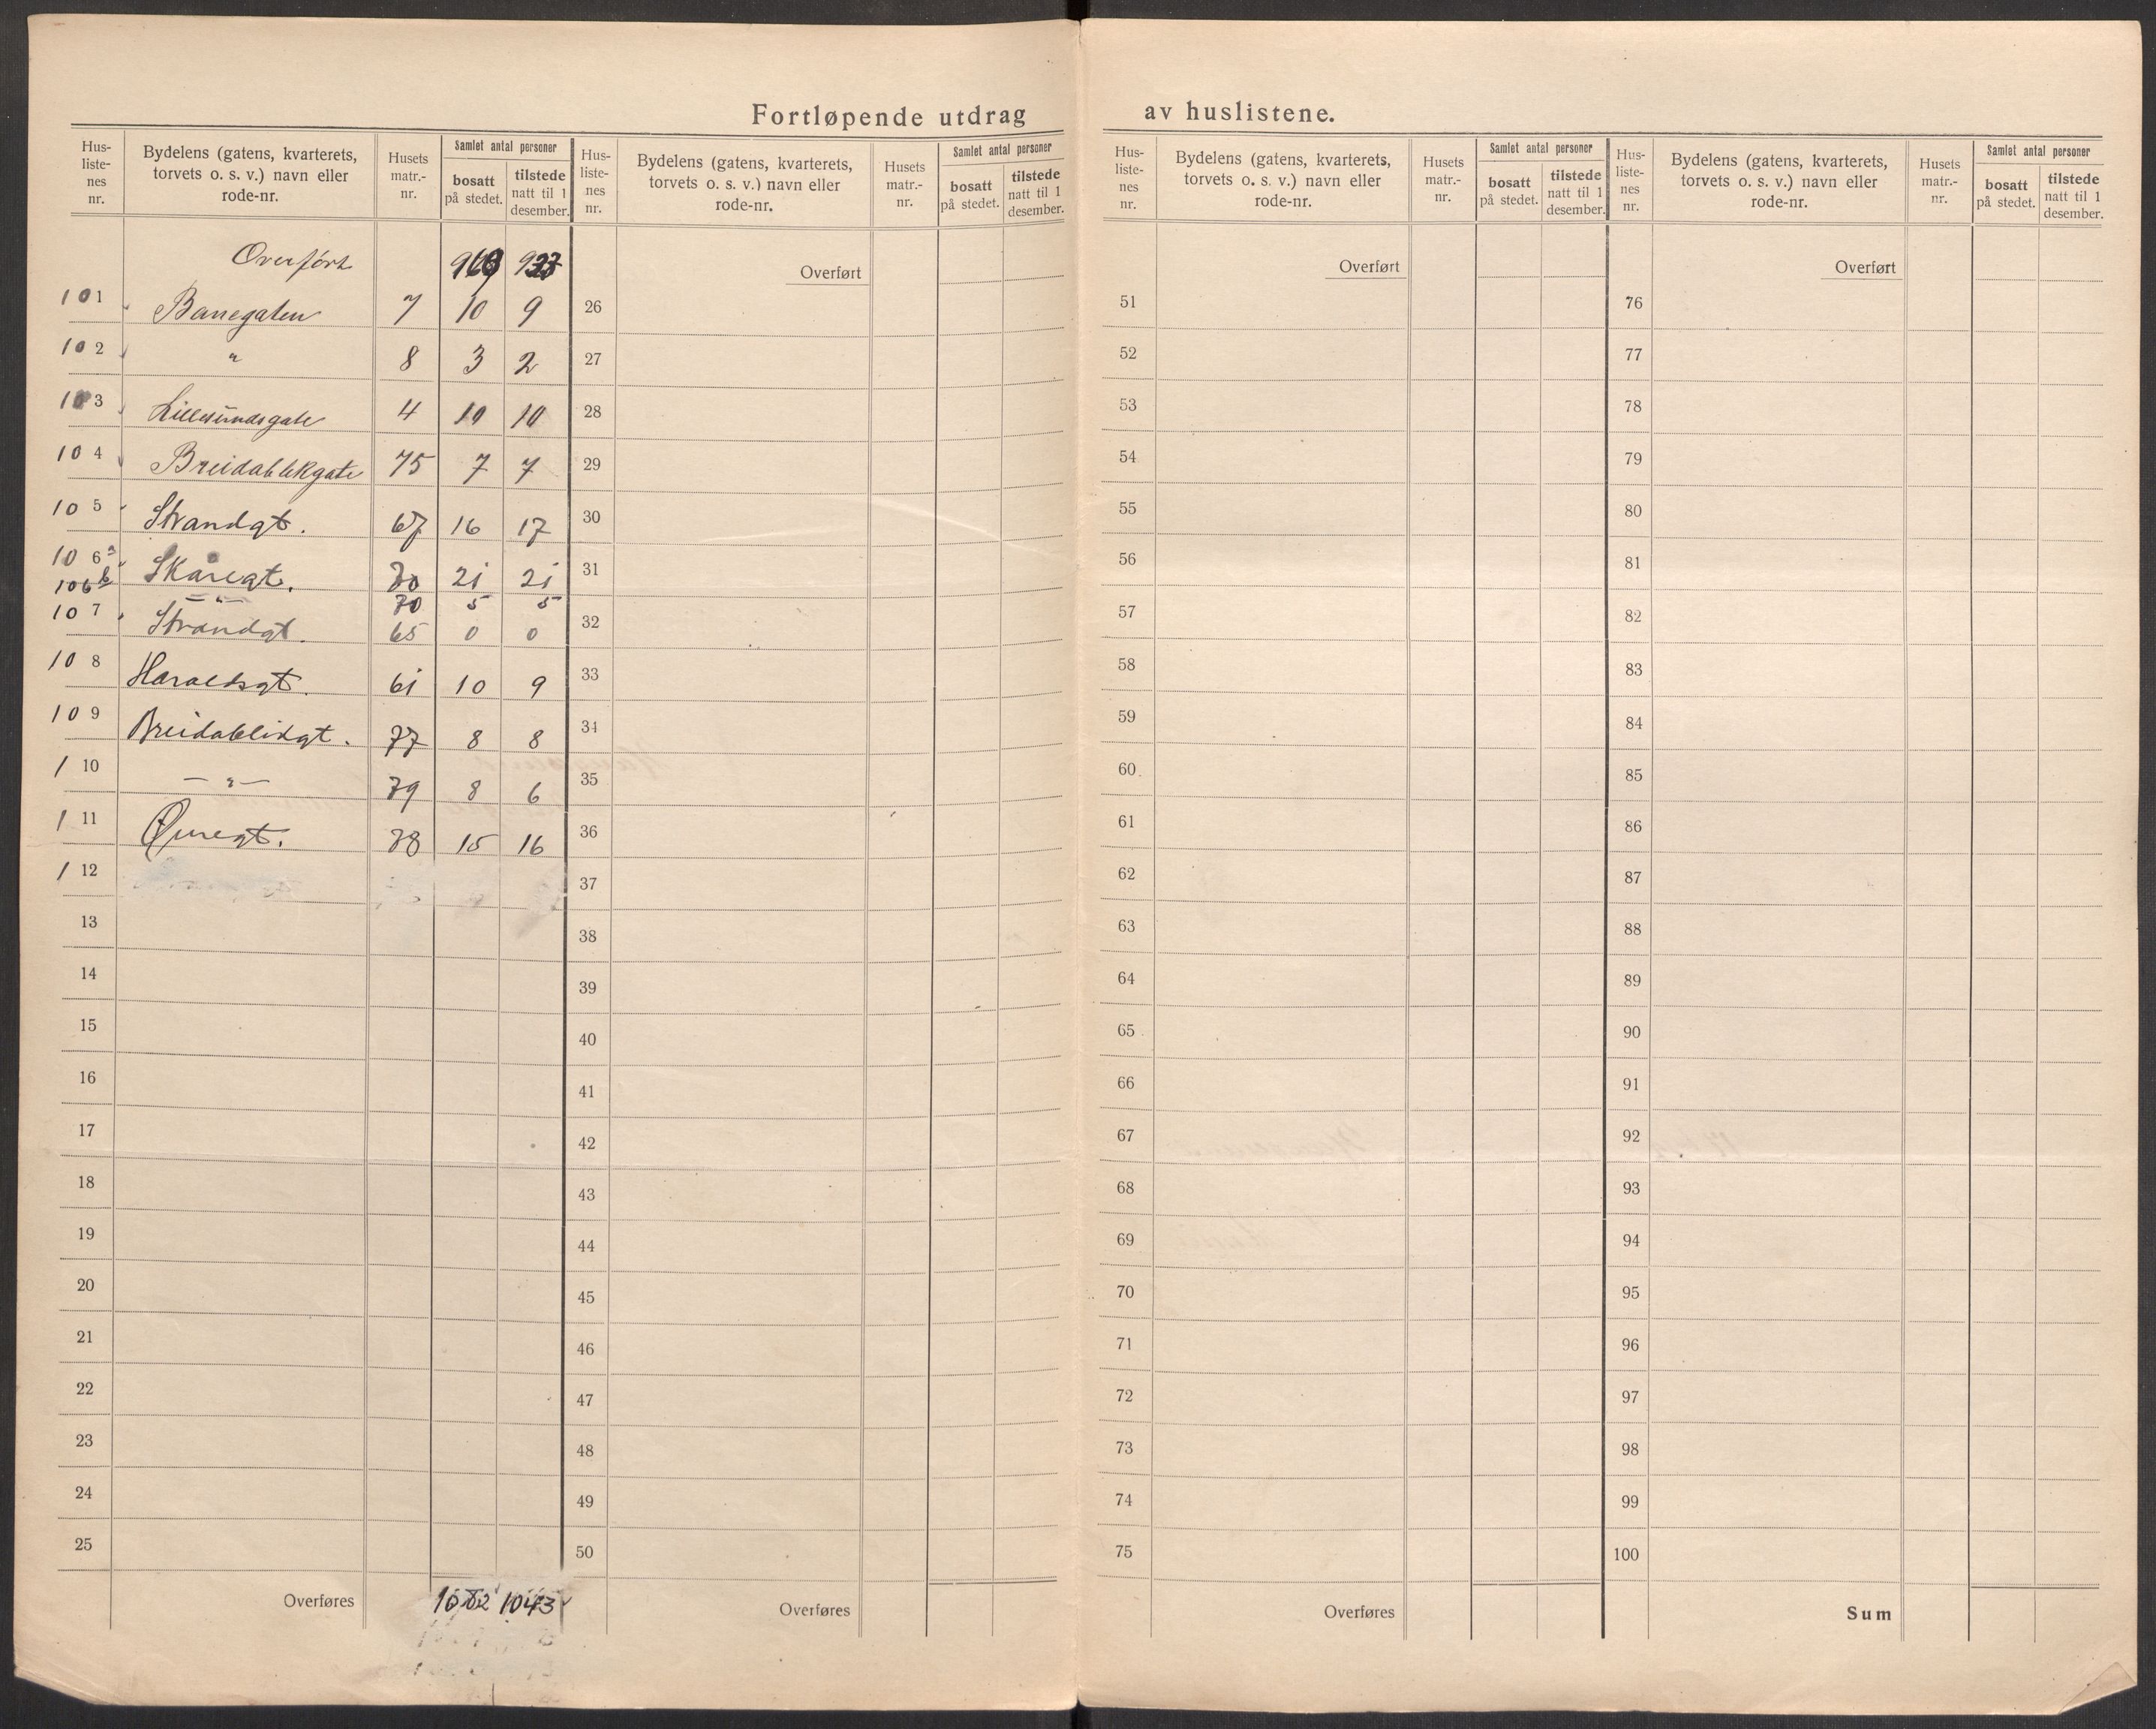 Fortløpende utdrag av huslistene.
Hus-listenes nr. | Bydelens (gatens, kvarterets, torvets o. s. v.) navn eller rode-nr. | Husets matr.-nr. | Samlet antal personer | bosatt på stedet. | tilstede natt til 1 desember.
Overført
101 Banegaten 7 10 9
102 " 8 3 2
103 Lillesundsgate 4 10 10
104 Breidablikgate 75 7 7
105 Strandgt. 67 16 17
106a Skåregt. 70 21 21
106b — " — 70 5 5
107 Strandgt. 65 0 0
108 Haraldsgt. 61 10 9
109 Breidablikgt. 77 8 8
110 — " — 79 8 6
111 Øvregt. 78 15 16
112
13
14
15
16
17
18
19
20
21
22
23
24
25
Overføres 1043
Hus-listenes nr. | Bydelens (gatens, kvarterets, torvets o. s. v.) navn eller rode-nr. | Husets matr.-nr. | Samlet antal personer | bosatt på stedet. | tilstede natt til 1 desember.
Overført
26
27
28
29
30
31
32
33
34
35
36
37
38
39
40
41
42
43
44
45
46
47
48
49
50
Overføres
Hus-listenes nr. | Bydelens (gatens, kvarterets, torvets o. s. v.) navn eller rode-nr. | Husets matr.-nr. | Samlet antal personer | bosatt på stedet. | tilstede natt til 1 desember.
Overført
51
52
53
54
55
56
57
58
59
60
61
62
63
64
65
66
67
68
69
70
71
72
73
74
75
Overføres
Hus-listenes nr. | Bydelens (gatens, kvarterets, torvets o. s. v.) navn eller rode-nr. | Husets matr.-nr. | Samlet antal personer | bosatt på stedet. | tilstede natt til 1 desember.
Overført
76
77
78
79
80
81
82
83
84
85
86
87
88
89
90
91
92
93
94
95
96
97
98
99
100
Sum